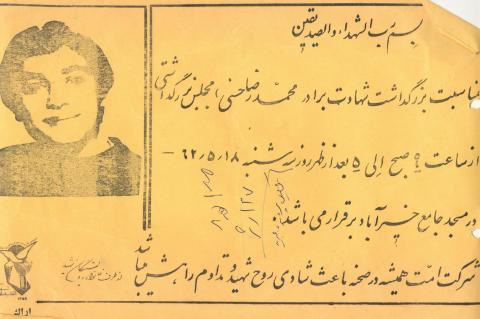 بسم رب الشهداء والصدیقین
بمناسبت بزرگداشت شهادت برادر محمدرضا حسنی مجلس بزرگداشتی
از ساعت ۹ صبح الی ۵ بعدازظهر روز سه شنبه ۶۲/۵/۱۸ -
در مسجد جامع خیرآباد برقرار می باشد.
شرکت امت همیشه در صحنه باعث شادی روح شهید و تداوم راهش میباشد
اراک